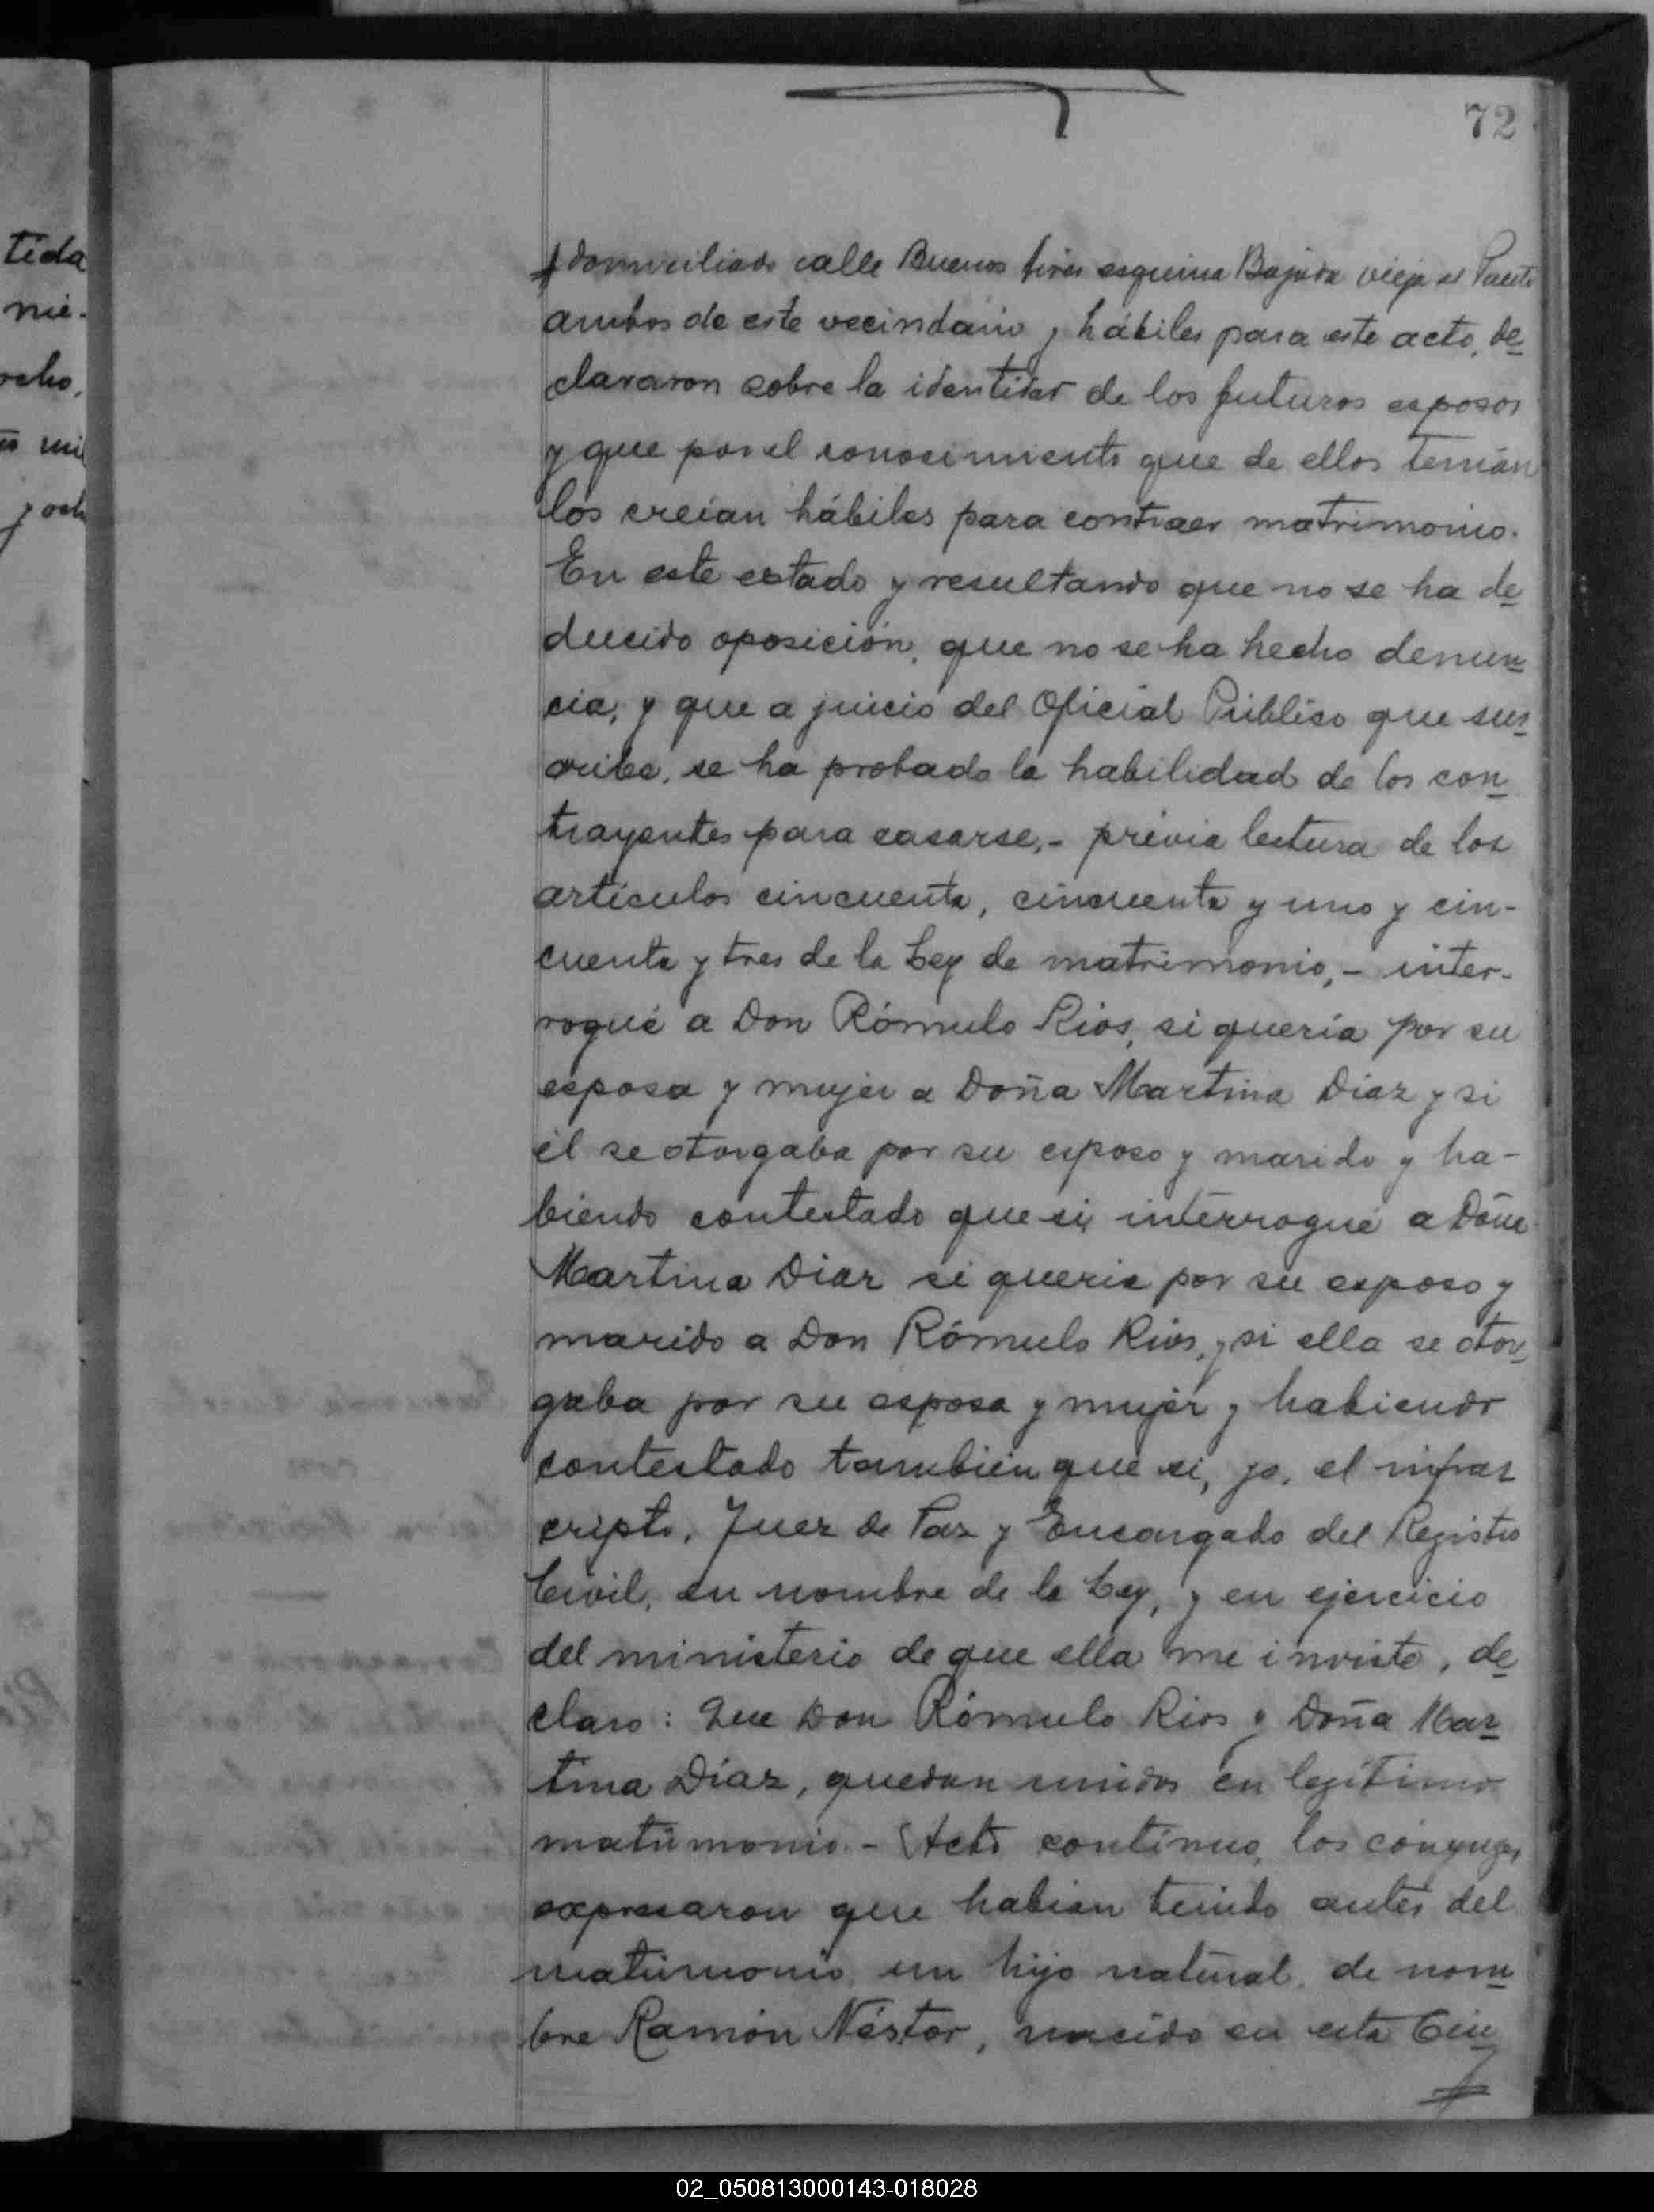 72
tida
nie-
ocho,
mil
y och
domiciliado calle Buenos Aires esquina Bajada vieja al Puerto
ambos de este vecindario y hábiles para este acto, de
clararon sobre la identidad de los futuros esposos
y que por el conocimiento que de ellos tenían
los creían hábiles para contraer matrimonio.
En este estado y resultando que no se ha de
ducido oposición, que no se ha hecho denun
cia, y que a juicio del Oficial Público que sus
cribe, se ha probado la habilidad de los con
trayentes para casarse,- prévia lectura de los
artículos cincuenta, cincuenta y uno y cin-
cuenta y tres de la Ley de matrimonio,- inter-
rogué a Don Rómulo Rios, si quería por su
esposa y mujer a Doña Martina Díaz y si
él se otorgaba por su esposo y marido y ha-
biendo contestado que si, interrogué a Doña
Martina Diaz si queria por su esposo y
marido a Don Rómulo Rios, y si ella se otor
gaba por su esposa y mujer y habiendo
contestado también que si, yo, el infras
cripto, Juez de Paz y Encargado del Registro
Civil, en nombre de la Ley, y en ejercicio
del ministerio de que ella me inviste, de
claro: Que Don Rómulo Rios y Doña Mar
tina Díaz, quedan unidos en legítimo
matrimonio.- Acto contínuo, los cónyuges
expresaron que habían tenido antes del
matrimonio un hijo natural, de nom
bre Ramón Néstor, nacido en esta Ciu
02_050813000143-018028